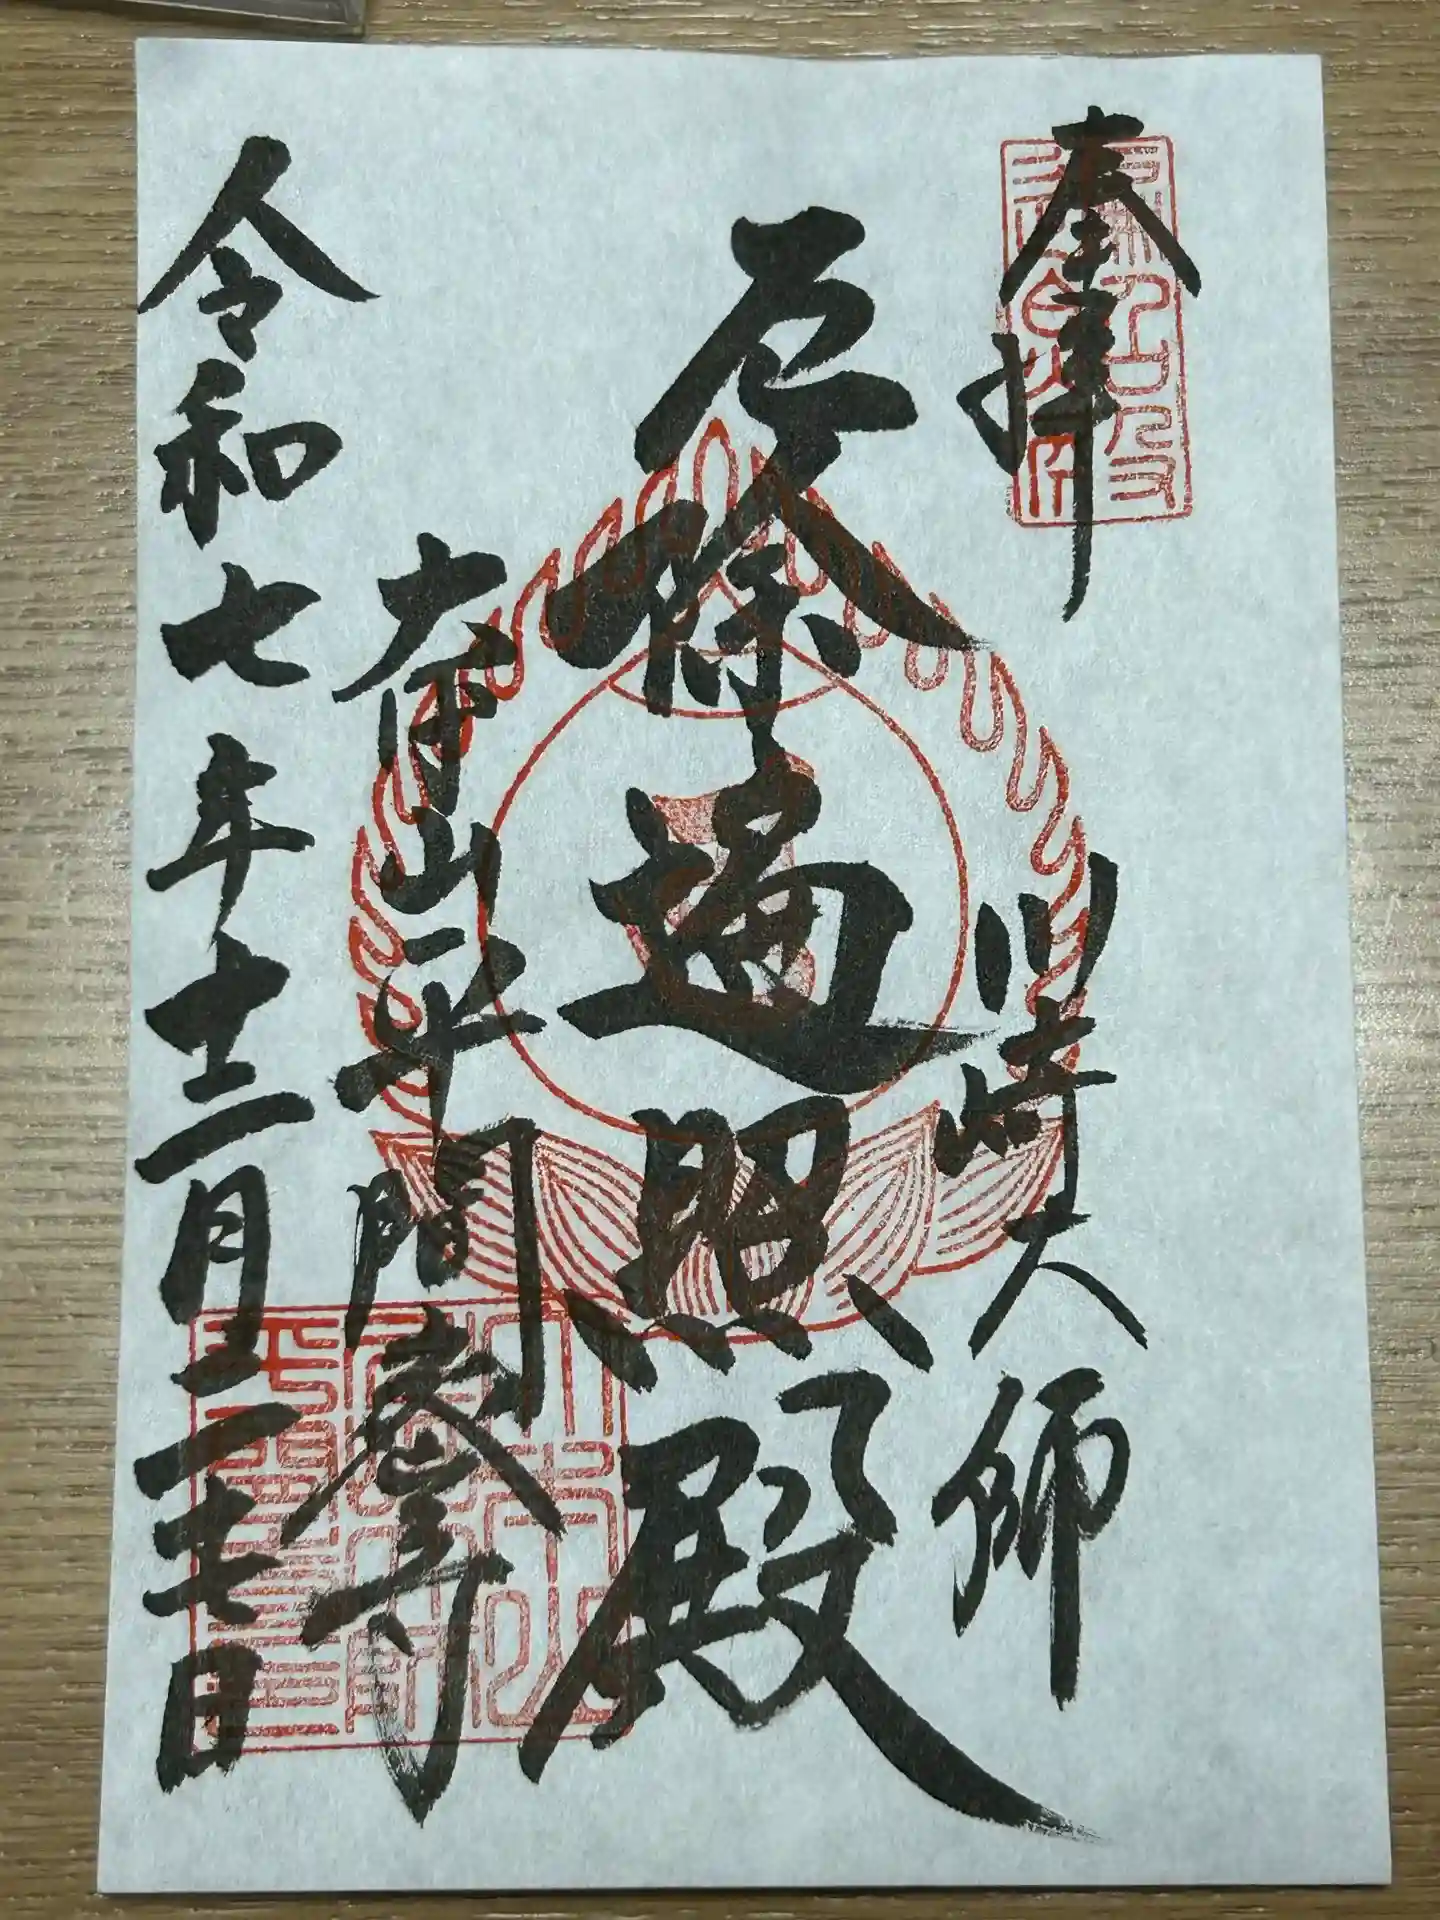 奉拝
川崎大師
厄除遍照殿
大本山平間寺
令和七年十二月二十七日